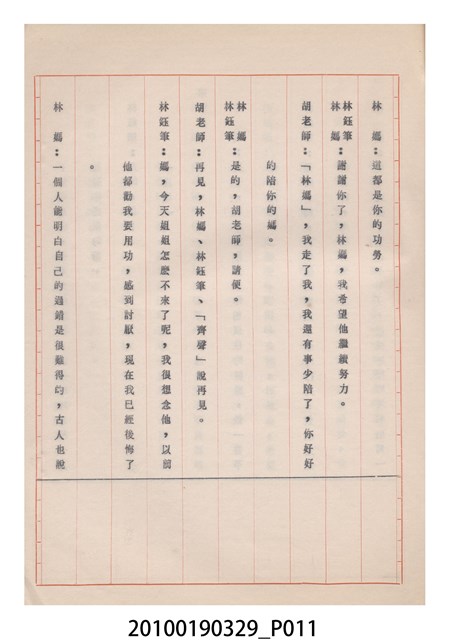 林　媽：這都是你的功勞。
林鈺筆
林　媽：謝謝你了，林媽，我希望他繼續努力。
胡老師：「林媽」，我走了我，我還有事少陪了，你好好
的陪你的媽。
林　媽
林鈺筆：是的，胡老師，請便。
胡老師：再見，林媽、林鈺筆、「齊聲」說再見。
林鈺筆：媽，今天姐姐怎麼不來了呢，我很想念他，以前
他都勸我要用功，感到討厭，現在我已經後悔了
。
林　媽：一個人能明白自己的過錯是很難得的，古人也說
20100190329_P011